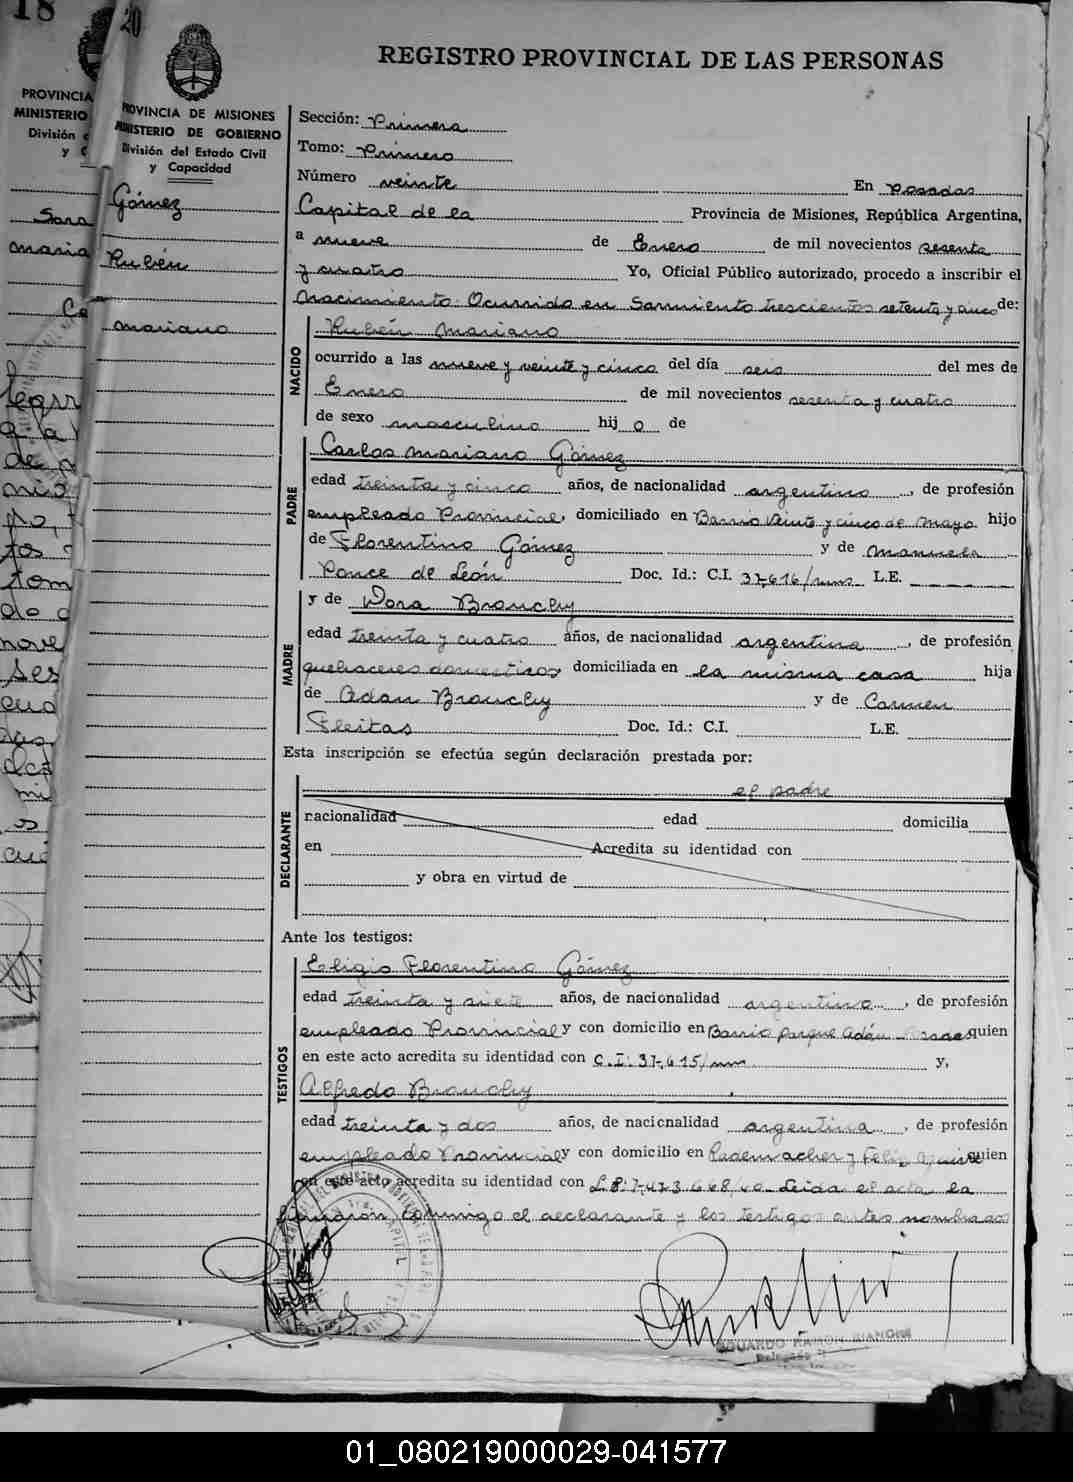 18
20
REGISTRO PROVINCIAL DE LAS PERSONAS
PROVINCIA
MINISTERIO
División
y C
Sara
Maria
PROVINCIA DE MISIONES
MINISTERIO DE GOBIERNO
División del Estado Civil
y Capacidad
Gómez
Rubén
Mariano
Sección: Primera
Tomo: Primero
Número veinte En Posadas
Capital de la Provincia de Misiones, República Argentina,
a nueve de Enero de mil novecientos sesenta
y cuatro Yo, Oficial Público autorizado, procedo a inscribir el
Nacimiento. Ocurrido en Sarmiento trescientos setenta y cinco de:
NACIDO
Rubén Mariano
ocurrido a las nueve y veinte y cinco del día seis del mes de
Enero de mil novecientos sesenta y cuatro
de sexo masculino hij o de
PADRE
Carlos Mariano Gómez
edad treinta y cinco años, de nacionalidad argentino, de profesión
empleado Provincial, domiciliado en Barrio Veinte y cinco de Mayo hijo
de Florentino Gómez y de Manuela
Ponce de León Doc. Id.: C.I. 37,616/mns L.E.
MADRE
y de Dora Brouchy
edad treinta y cuatro años, de nacionalidad argentina, de profesión
quehaceres domesticos, domiciliada en la misma casa hija
de Adan Brouchy y de Carmen
Fleitas Doc. Id.: C.I. L.E.
Esta inscripción se efectúa según declaración prestada por:
el padre
DECLARANTE
nacionalidad edad domicilia
en Acredita su identidad con
y obra en virtud de
Ante los testigos:
TESTIGOS
Eligio Florentino Gómez
edad treinta y siete años, de nacionalidad argentino, de profesión
empleado Provincial y con domicilio en Barrio parque Adán quien
en este acto acredita su identidad con C.I: 37,615/mns y,
Alfredo Brouchy
edad treinta y dos años, de nacionalidad argentina, de profesión
empleado Provincial y con domicilio en Rademacher y Felix quien
en este acto acredita su identidad con Leida el acta la
firmaron conmigo el declarante y los testigos antes nombrados
EDUARDO RAMON
01_080219000029-041577